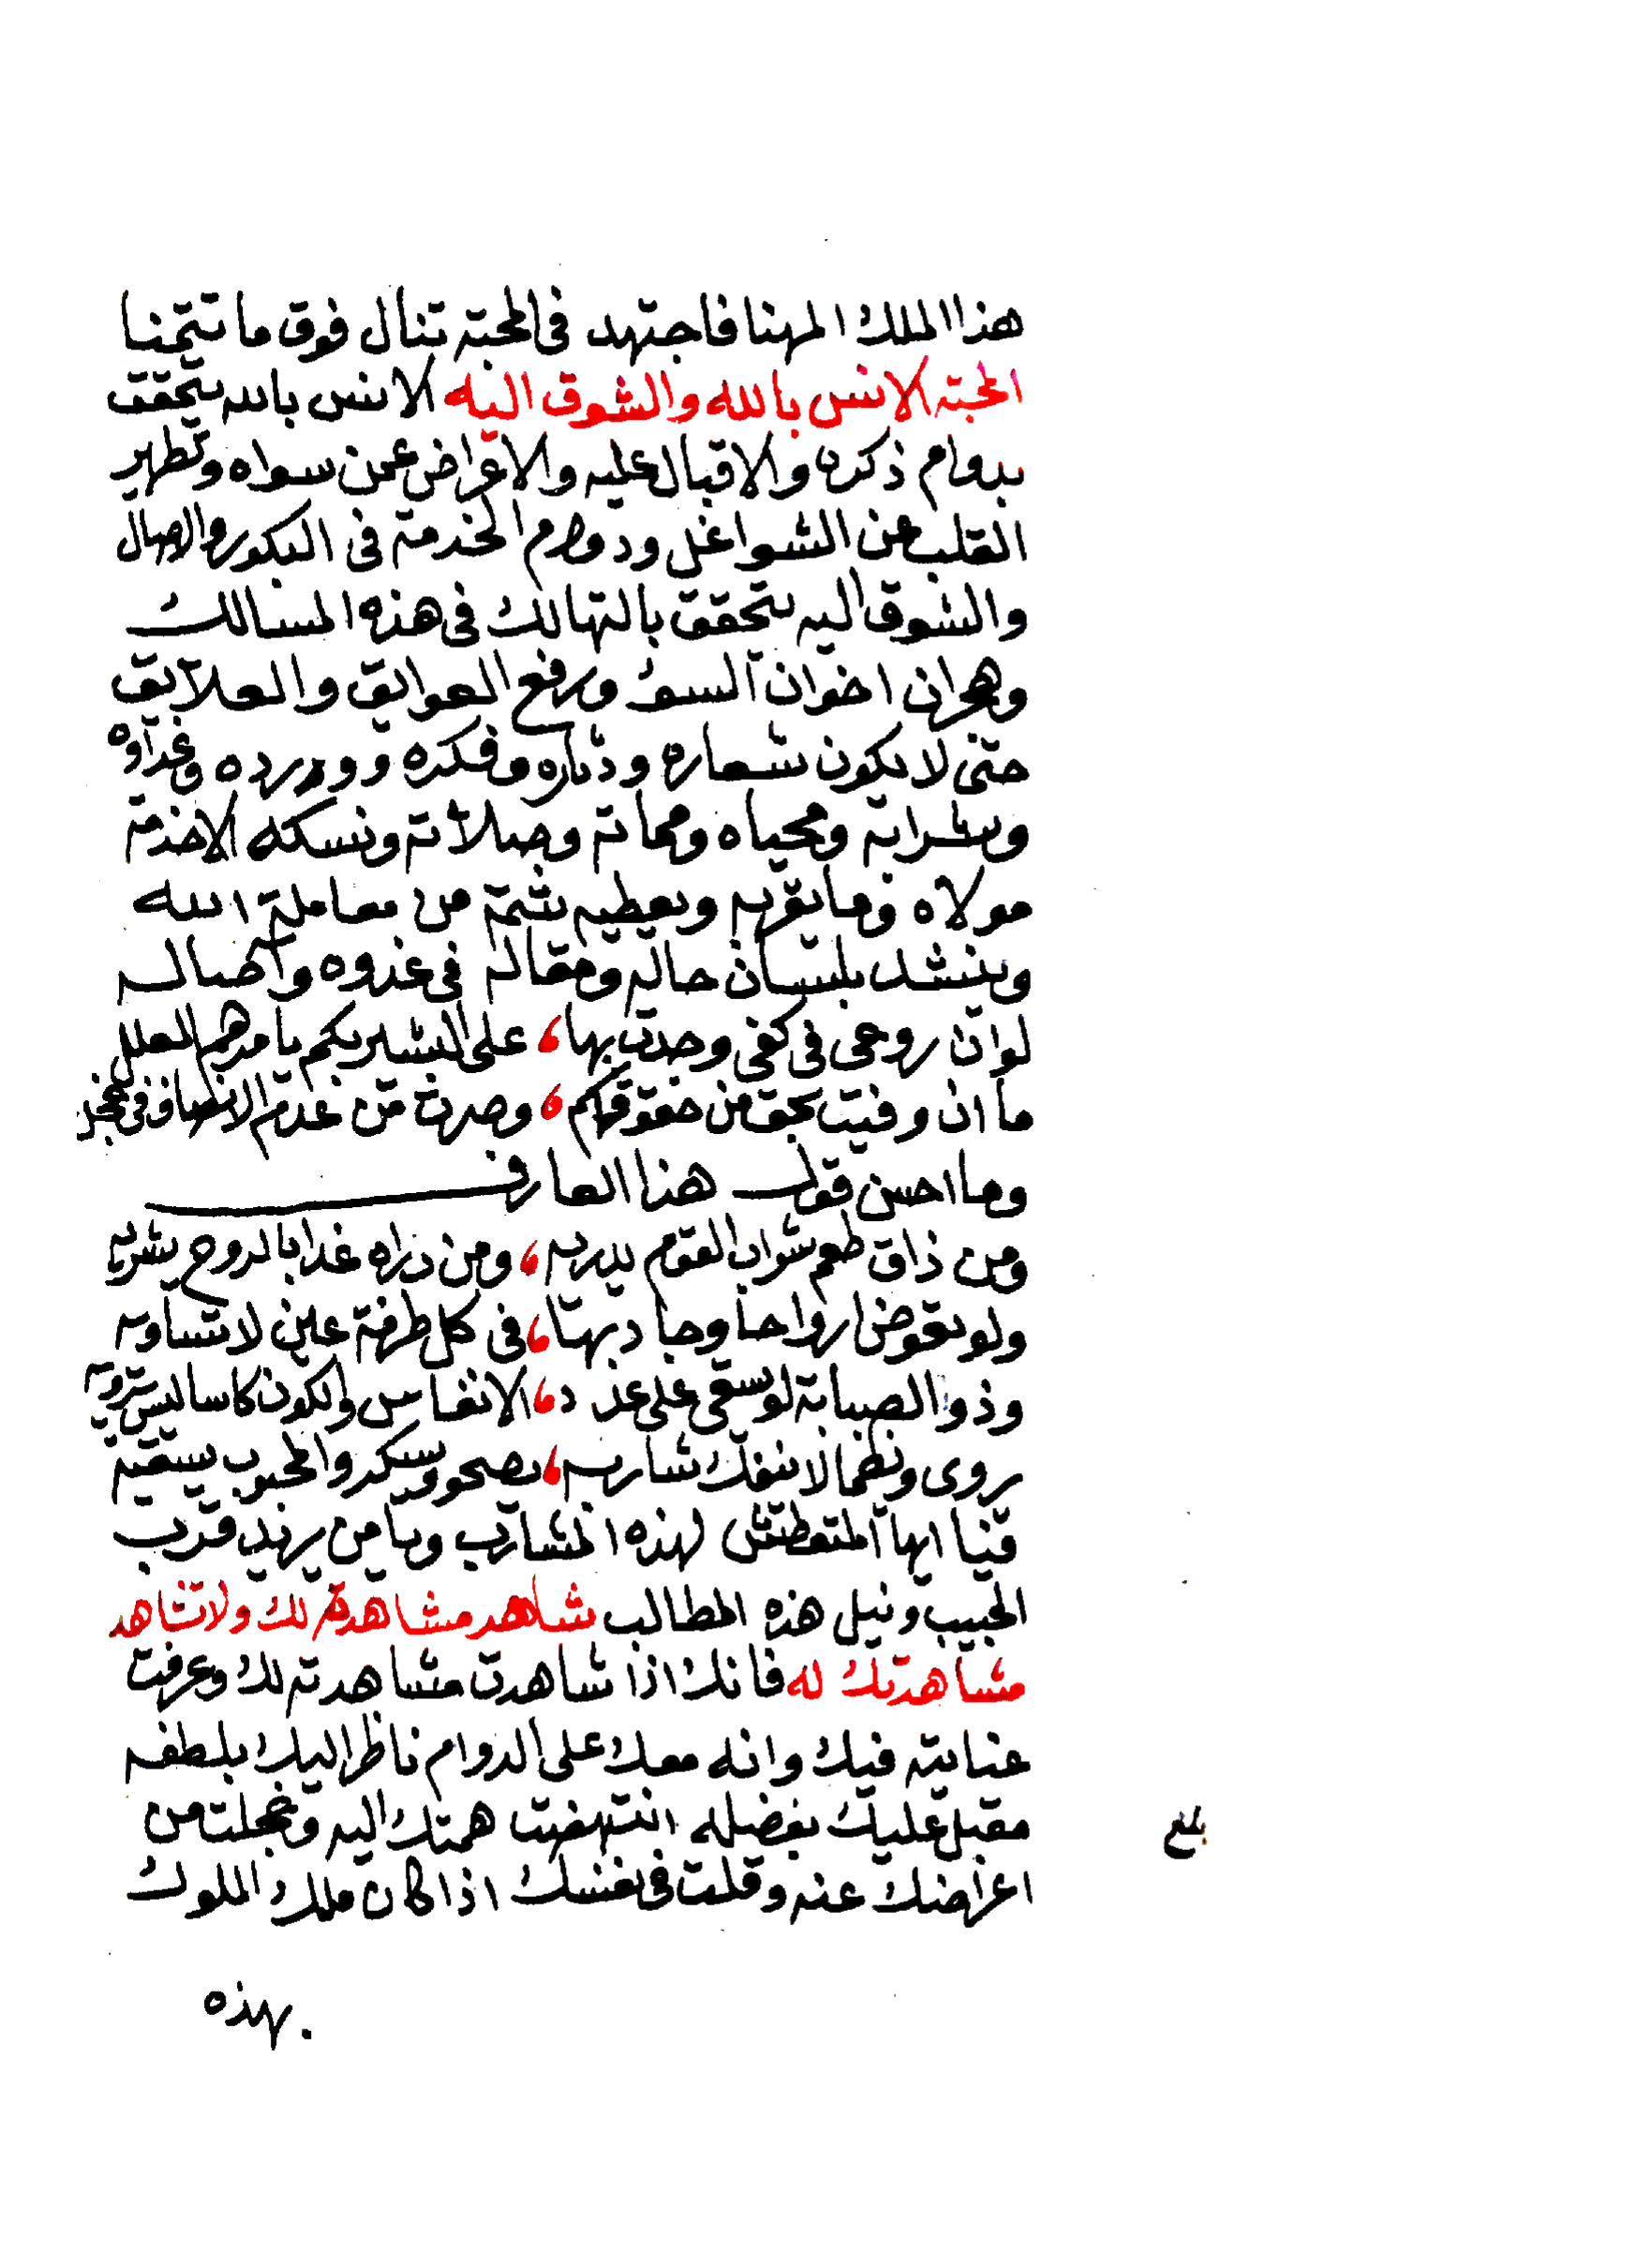 هذا الملك المهنا فاجتهد في المحبة تنال فوق ما تتمنا
المحبة الانس بالله والشوق اليه الانس بالله يتحقق
بدوام ذكره والاقبال عليه والاعراض عن سواه وتطهير
القلب عن الشواغل ودوام الخدمة في البكور والاصال
والشوق اليه يتحقق بالتهالك في هذه المسالك
وهجران اخوان السوء ورفع العوايق والعلايق
حتى لا يكون شعاره ودثاره وفكره وورده وغذاوه
وشرابه ومحياه ومماته وصلاته ونسكه الا خدمة
مولاه وما يقربه ويعطيه شمة من معاملة الله
وينشد بلسان حاله ومقاله في غدوه وآصاله
لو ان روحى في كفى وجدت بها، على البشير بكم يا مرهم العلل
ما ان وفيت بحق من حقوقكم، وصرت من عدم الانصاف في خجل
وما احسن قول هذا العارف
ومن ذاق طعم شراب القوم يدريه، ومن دراه غدا بالروح يشريه
ولو تعوض ارواحا وجاد بها، في كل طرفة عين لا تساويه
وذو الصبابة لو يسقى على عدد، الانفاس والكون كاسا ليس ترويه
يروى ويظما لا ينفك شاربه، يصحو ويسكر والمحبوب يسقيه
فيا ايها المتعطش لهذه المشارب ويا من يريد قرب
الحبيب ونيل هذه المطالب شاهد مشاهدته لك ولا تشاهد
مشاهدتك له فانك اذا شاهدت مشاهدته لك وعرفت
عنايته فيك وانه معك على الدوام ناظر اليك بلطفه
مقبل عليك بفضله انتهضت همتك اليه وخجلت من
اعراضك عنه وقلت في نفسك اذا كان ملك الملوك
بلغ
بهذه